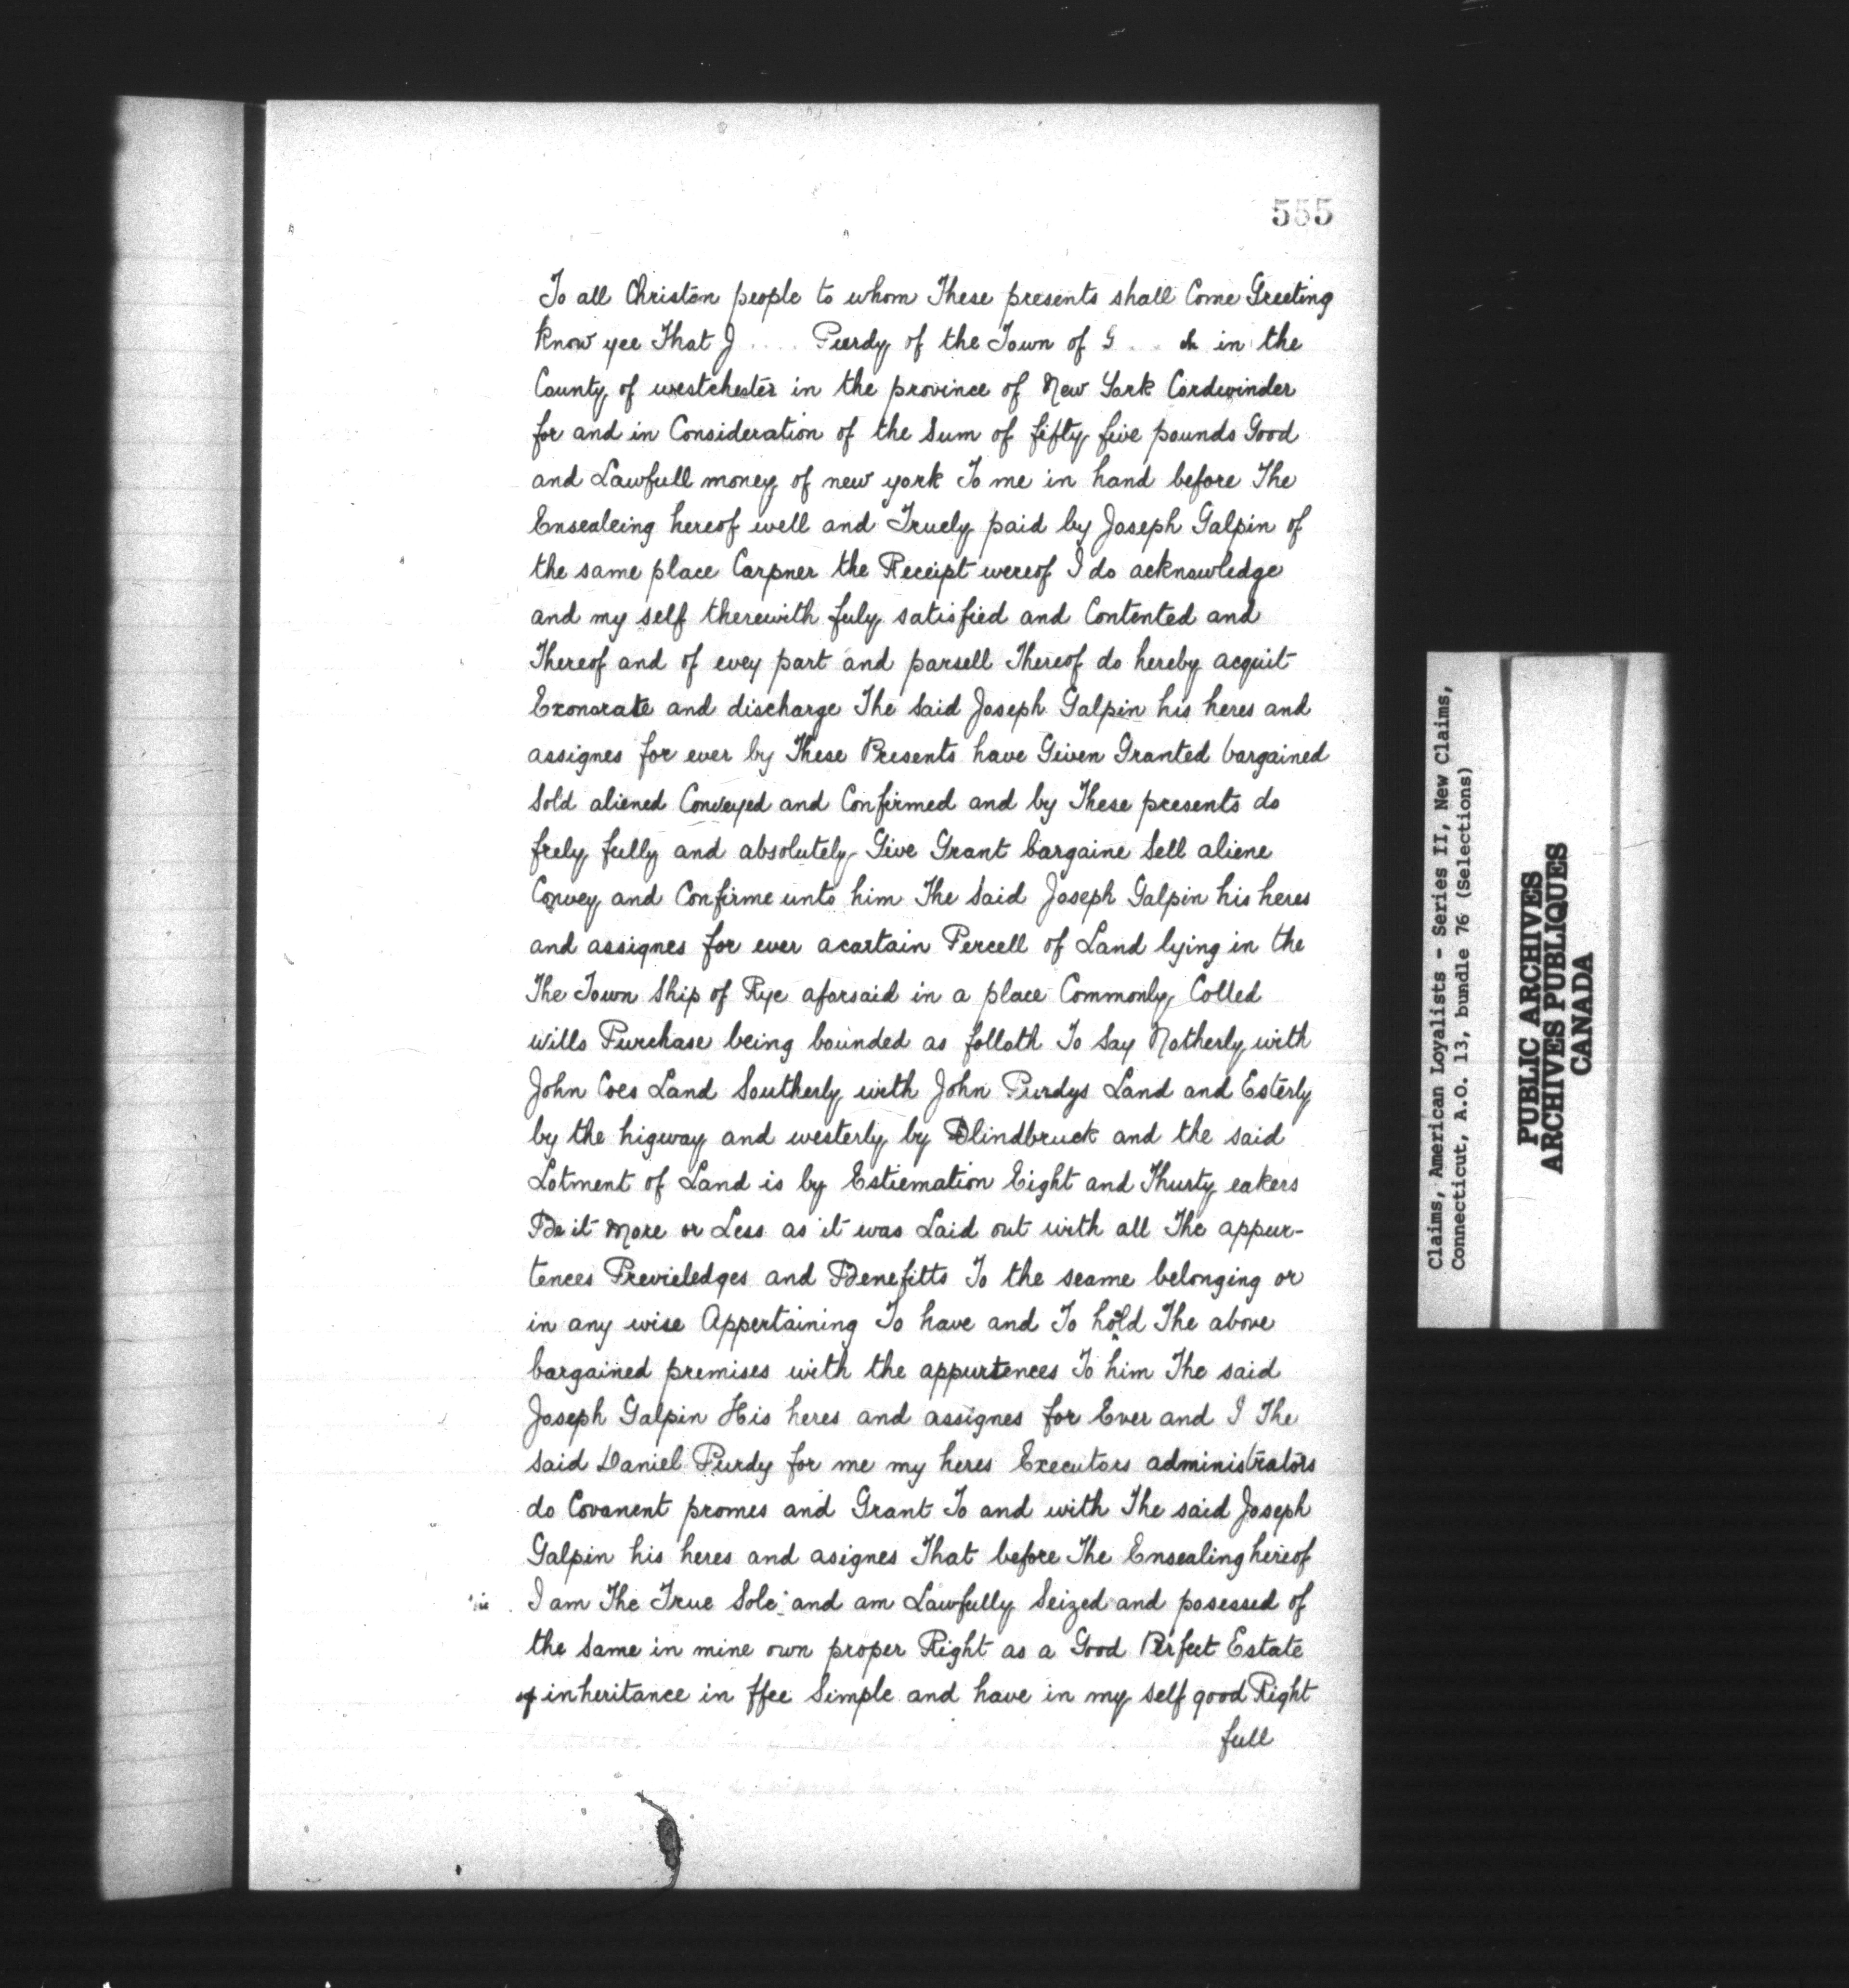 555
To all Christan people to whom These presents shall Come Greeting
know yee That J .... Purdy of the Town of G . . ch in the
County of westchester in the province of New York Cordwinder
for and in Consideration of the Sum of fifty five pounds Good
and Lawfull money of new york To me in hand before The
Ensealeing hereof well and Truely paid by Joseph Galpin of
the same place Carpner the Receipt wereof I do acknowledge
and my self therewith fuly satisfied and Contented and
Thereof and of evey part and parsell Thereof do hereby acquit
Exonarate and discharge The Said Joseph Galpin his heres and
assignes for ever by These Presents have Given Granted bargained
Sold aliened Conveyed and Confirmed and by These presents do
frely fully and absolutely Give Grant bargaine Sell aliene
Convey and Confirme unto him The Said Joseph Galpin his heres
and assignes for ever acartain Percell of Land lying in the
The Town Ship of Rye aforsaid in a place Commonly Colled
wills Purchase being bounded as folloth To Say Notherly with
John Coes Land Southerly with John Purdys Land and Esterly
by the higway and westerly by Blindbruck and the said
Lotment of Land is by Estiemation Eight and Thurty eakers
Be it More or Less as it was Laid out with all The appur-
tences Previeledges and Benefitts To the seame belonging or
in any wise Appertaining To have and To hold The above
bargained premises with the appurtences To him The said
Joseph Galpin His heres and assignes for Ever and I The
said Daniel Purdy for me my heres Executors administrators
do Covanent promes and Grant To and with The said Joseph
Galpin his heres and asignes That before The Ensealing hereof
I am The True Sole and am Lawfully Seized and posessed of
the Same in mine own proper Right as a Good Perfect Estate
of inheritance in ffee Simple and have in my self good Right
full
Claims, American Loyalists - Series II, New Claims,
Connecticut, A.O. 13, bundle 76 (Selections)
PUBLIC ARCHIVES
ARCHIVES PUBLIQUES
CANADA